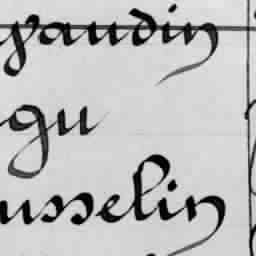 yaudin
gu
usselin